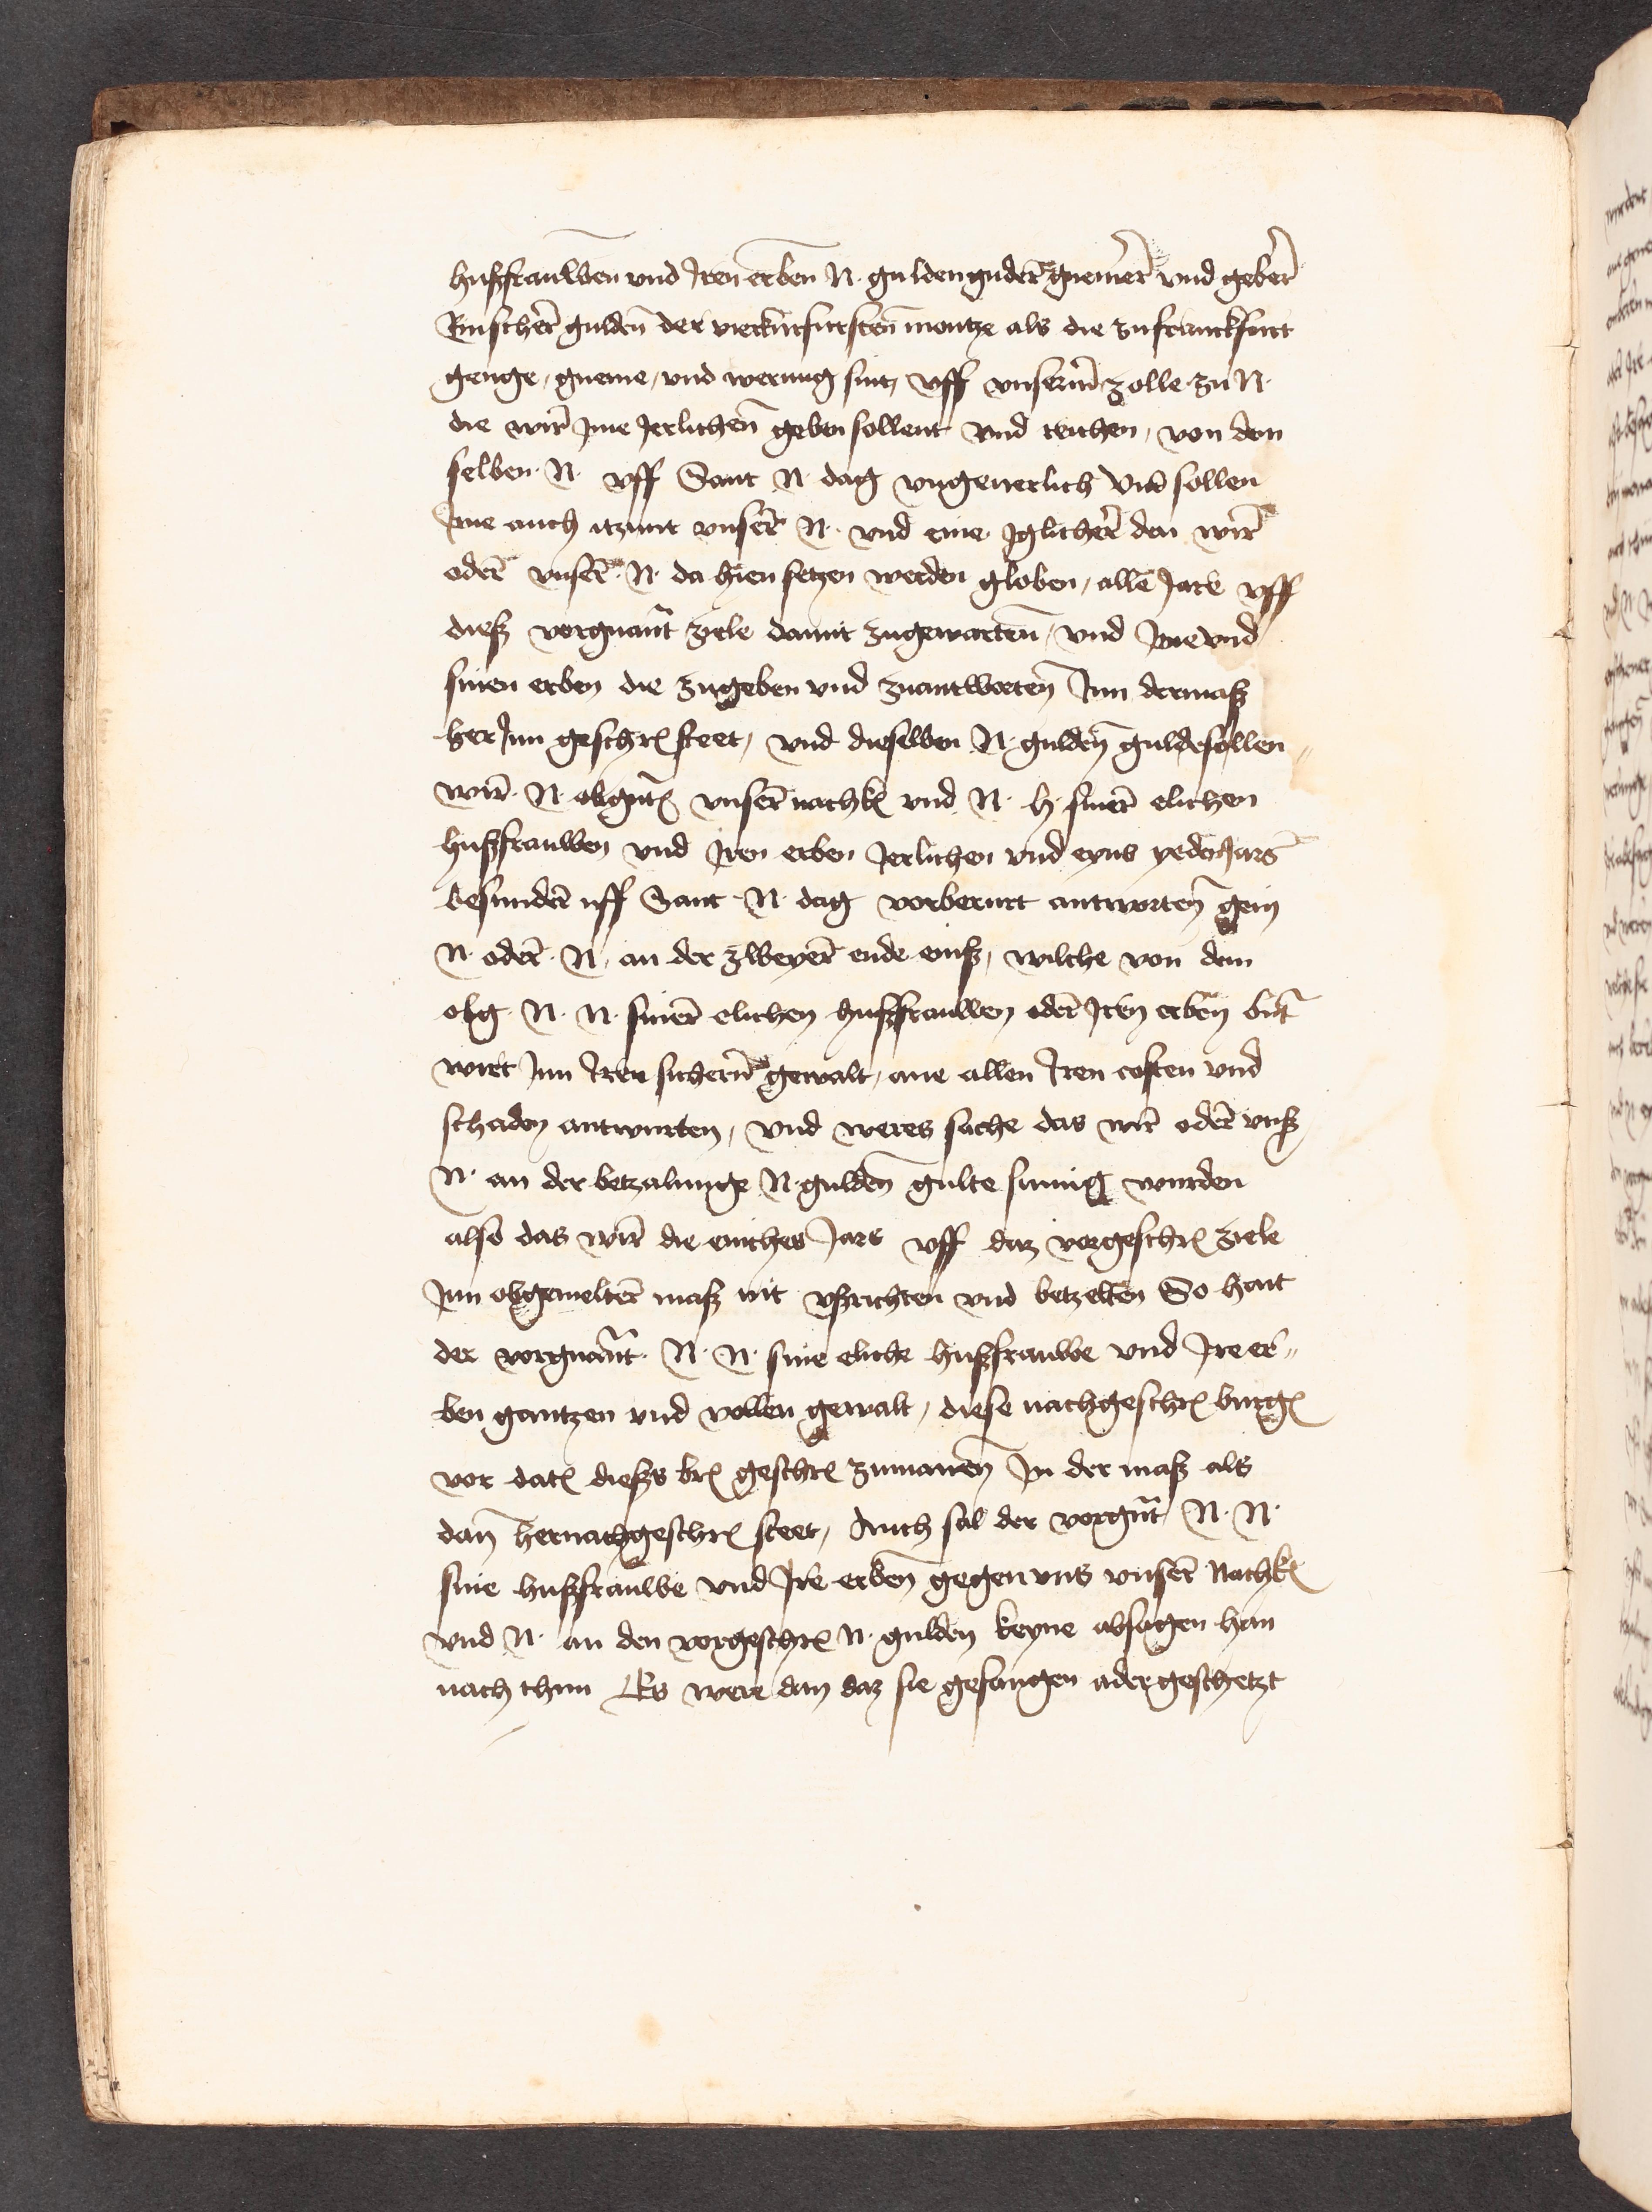 hußfrauwen vnd Iren erben N. gulden guder gnemer vnd geber
Rinscher gulden der vierkurfursten montze als die zufranckfurt
genge, gneme, vnd werung sint, vff vnserm zolle zu N.
die wir Ime Jerlichen geben sollent vnd reichen, von dem
selben N. vff Sant N dag vngeuerlich Vnd sollen
Ime auch itzunt vnser N. vnd eine Iglicher den wir
oder vnser N. da hien setzen werden globen, alle Jare vff
dieß vorgnant ziele damit zugewarten, vnd Ime vnd
sinen erben die zugeben vnd zuantworten Inn dermaß
her Inn geschr steet, vnd dieselben N. gulden gulde sollen
wir N. obgnt vnser nachk vnd N. h. siner elichen
hußfrauwen vnd Iren erben Jerlichen vnd eyns yeden Jars
besunder uff Sant N. dag vorberurt antworten gein
N. oder N, an der zweyer ende einß, wilche von dem
obg N. N. siner elichen hußfrauwen oder Iren erben
wirt Inn Iren sichern gewalt, ane allen Iren costen vnd
schaden antwurten, vnd weres sache das wir oder vnß
N. an der betzalunge N. gulden gulte sumig wurden
also das wir die eniches Jars vff daz vorgeschr ziele
Inn obgemelter maß nit vßrichten vnd betzelten So hait
der vorgnant. N. N. sine eliche hußfrauwe vnd Ire er
ben gantzen vnd vollen gewalt, diese nachgeschr burg
vor dat dießs br geschr zumanen In der maß als
dan hernachgeschr steet, Auch sal der vorgnt N. N.
sine hußfrauwe vnd Ire erben gegen vns vnser Nachk
vnd N. an den vorgeschr N. gulden keyne absagen han
nach thun Es were dan daz sie gefangen ader geschetzt